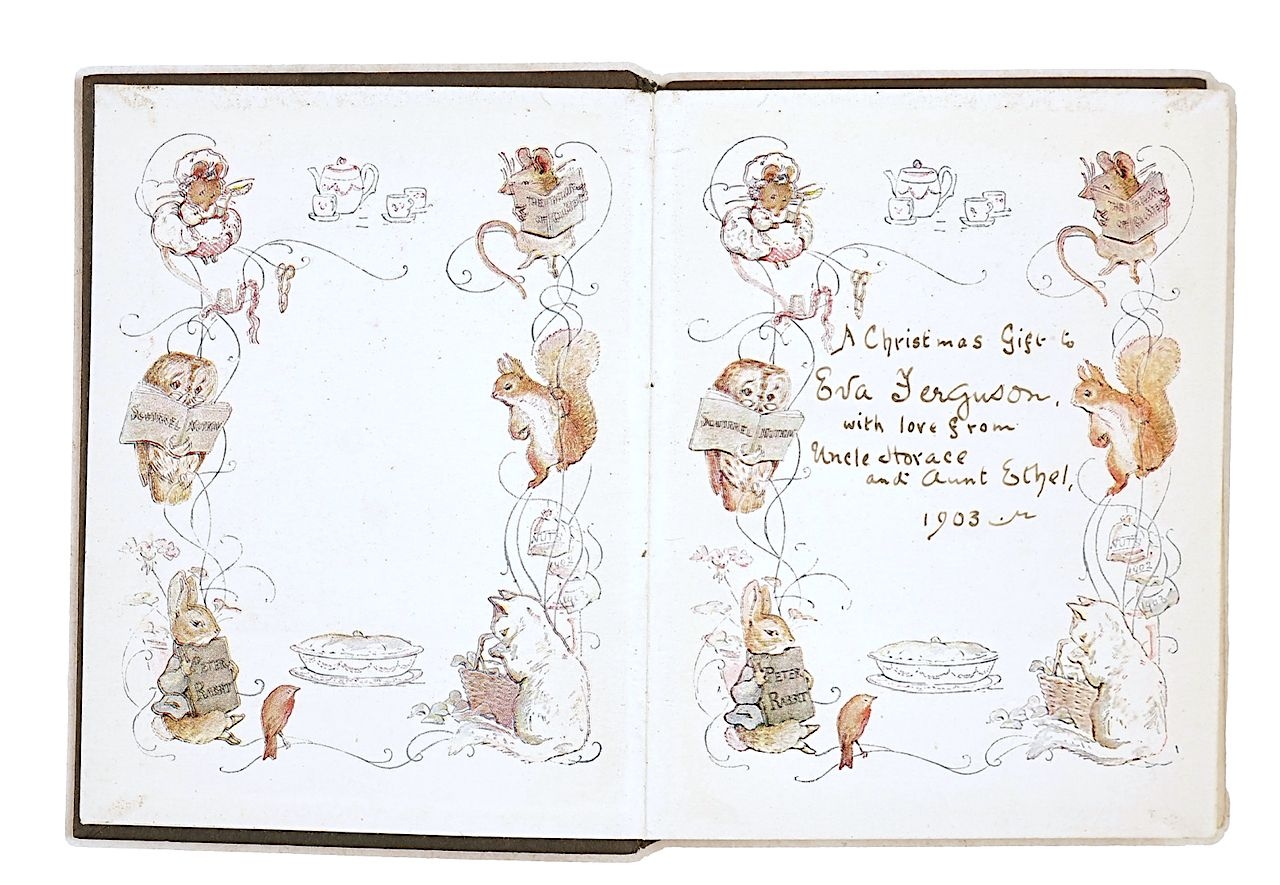 THE TAILOR
OF
SQUIRREL NUTKIN
NUTS
1902
PETER
RABBIT
THE TAILOR
OF
A Christmas Gift to
Eva Ferguson,
with love from
Uncle Horace
and Aunt Ethel,
1903
SQUIRREL NUTKIN
NUTS
1902
PETER
RABBIT